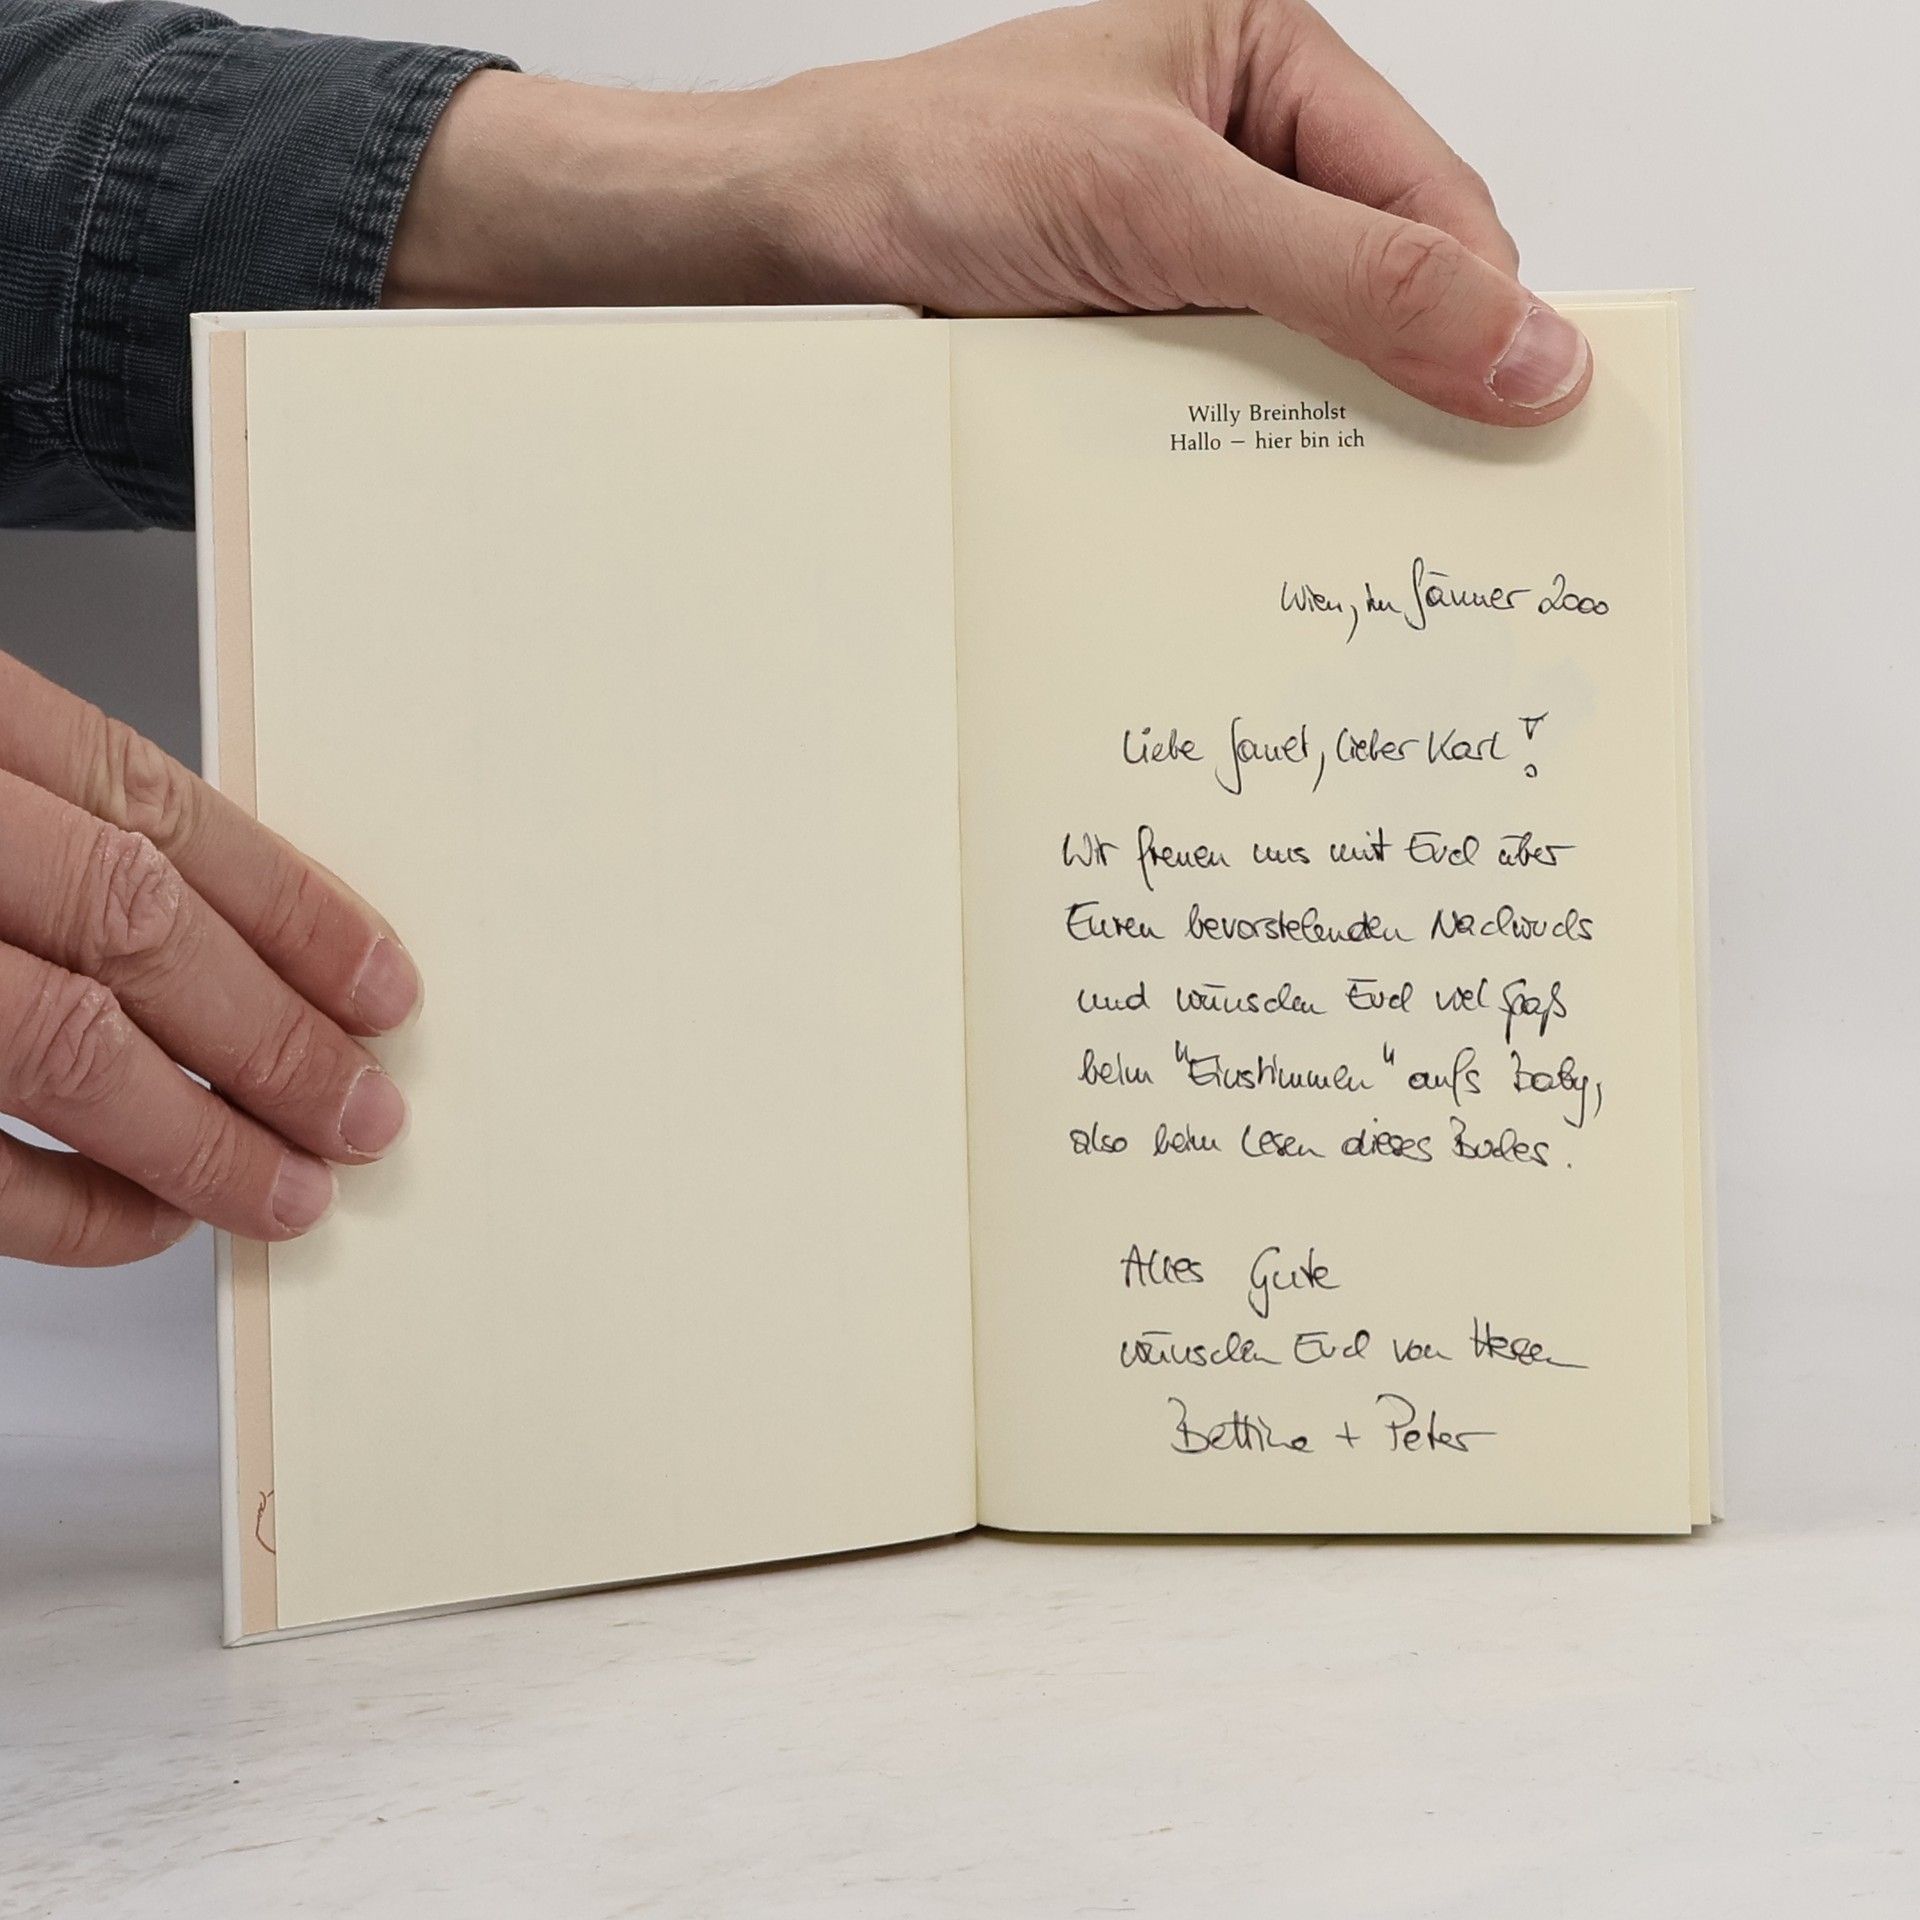 Willy Breinholst
Hallo – hier bin ich
Wien, im Jänner 2000
Liebe Janet, lieber Karl!
Wir freuen uns mit Euch über
Euren bevorstehenden Nachwuchs
und wünschen Euch viel Spaß
beim "Einstimmen" aufs Baby,
also beim Lesen dieses Buches.
Alles Gute
wünschen Euch von Herzen
Bettina + Peter